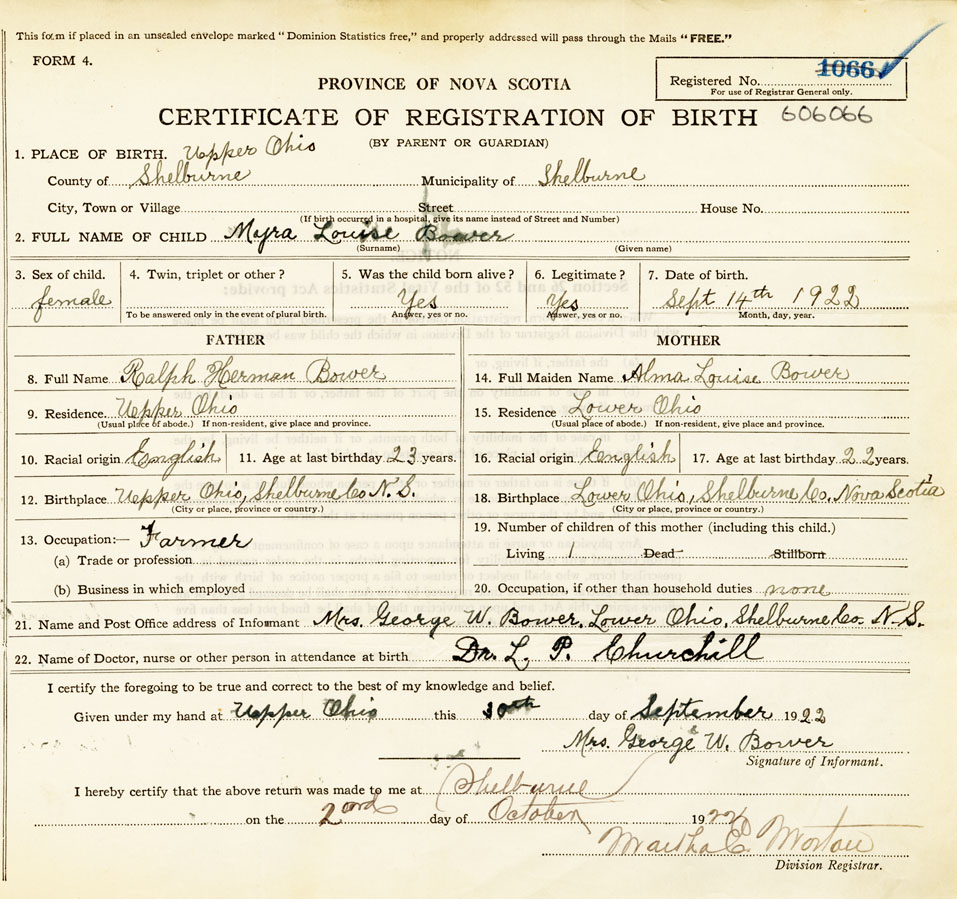 This form if placed in an unsealed envelope marked "Dominion Statistics free," and properly addressed will pass through the Mails "FREE."
FORM 4.
Registered No. 1066
For use of Registrar General only.
PROVINCE OF NOVA SCOTIA
CERTIFICATE OF REGISTRATION OF BIRTH 606066
(BY PARENT OR GUARDIAN)
1. PLACE OF BIRTH. Upper Ohio
County of Shelburne Municipality of Shelburne
City, Town or Village Street House No.
(If birth occurred in a hospital, give its name instead of Street and Number)
2. FULL NAME OF CHILD Myra Louise Bower
(Surname) (Given name)
3. Sex of child. 4. Twin, triplet or other? 5. Was the child born alive? 6. Legitimate? 7. Date of birth.
female Yes Yes Sept 14th 1922
To be answered only in the event of plural birth. Answer, yes or no. Answer, yes or no. Month, day, year.
FATHER
8. Full Name Ralph Herman Bower
9. Residence. Upper Ohio
(Usual place of abode.) If non-resident, give place and province.
10. Racial origin English 11. Age at last birthday 23 years.
12. Birthplace Upper Ohio, Shelburne Co N.S.
(City or place, province or country.)
13. Occupation:— Farmer
(a) Trade or profession
(b) Business in which employed
MOTHER
14. Full Maiden Name Alma Louise Bower
15. Residence Lower Ohio
(Usual place of abode.) If non-resident, give place and province.
16. Racial origin English 17. Age at last birthday 22 years.
18. Birthplace Lower Ohio, Shelburne Co. Nova Scotia
(City or place, province or country.)
19. Number of children of this mother (including this child.)
Living 1 Dead Stillborn
20. Occupation, if other than household duties none
21. Name and Post Office address of Informant Mrs. George W. Bower, Lower Ohio, Shelburne Co. N.S.
22. Name of Doctor, nurse or other person in attendance at birth Dr. L. P. Churchill
I certify the foregoing to be true and correct to the best of my knowledge and belief.
Given under my hand at Upper Ohio this 30th day of September 1922
Mrs. George W. Bower
Signature of Informant.
I hereby certify that the above return was made to me at Shelburne
on the 2nd day of October 1922
Martha E. Morton
Division Registrar.